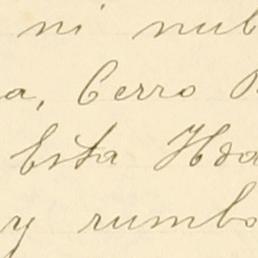 ni nub
a, Cerro
Esta Hda
y rumbo